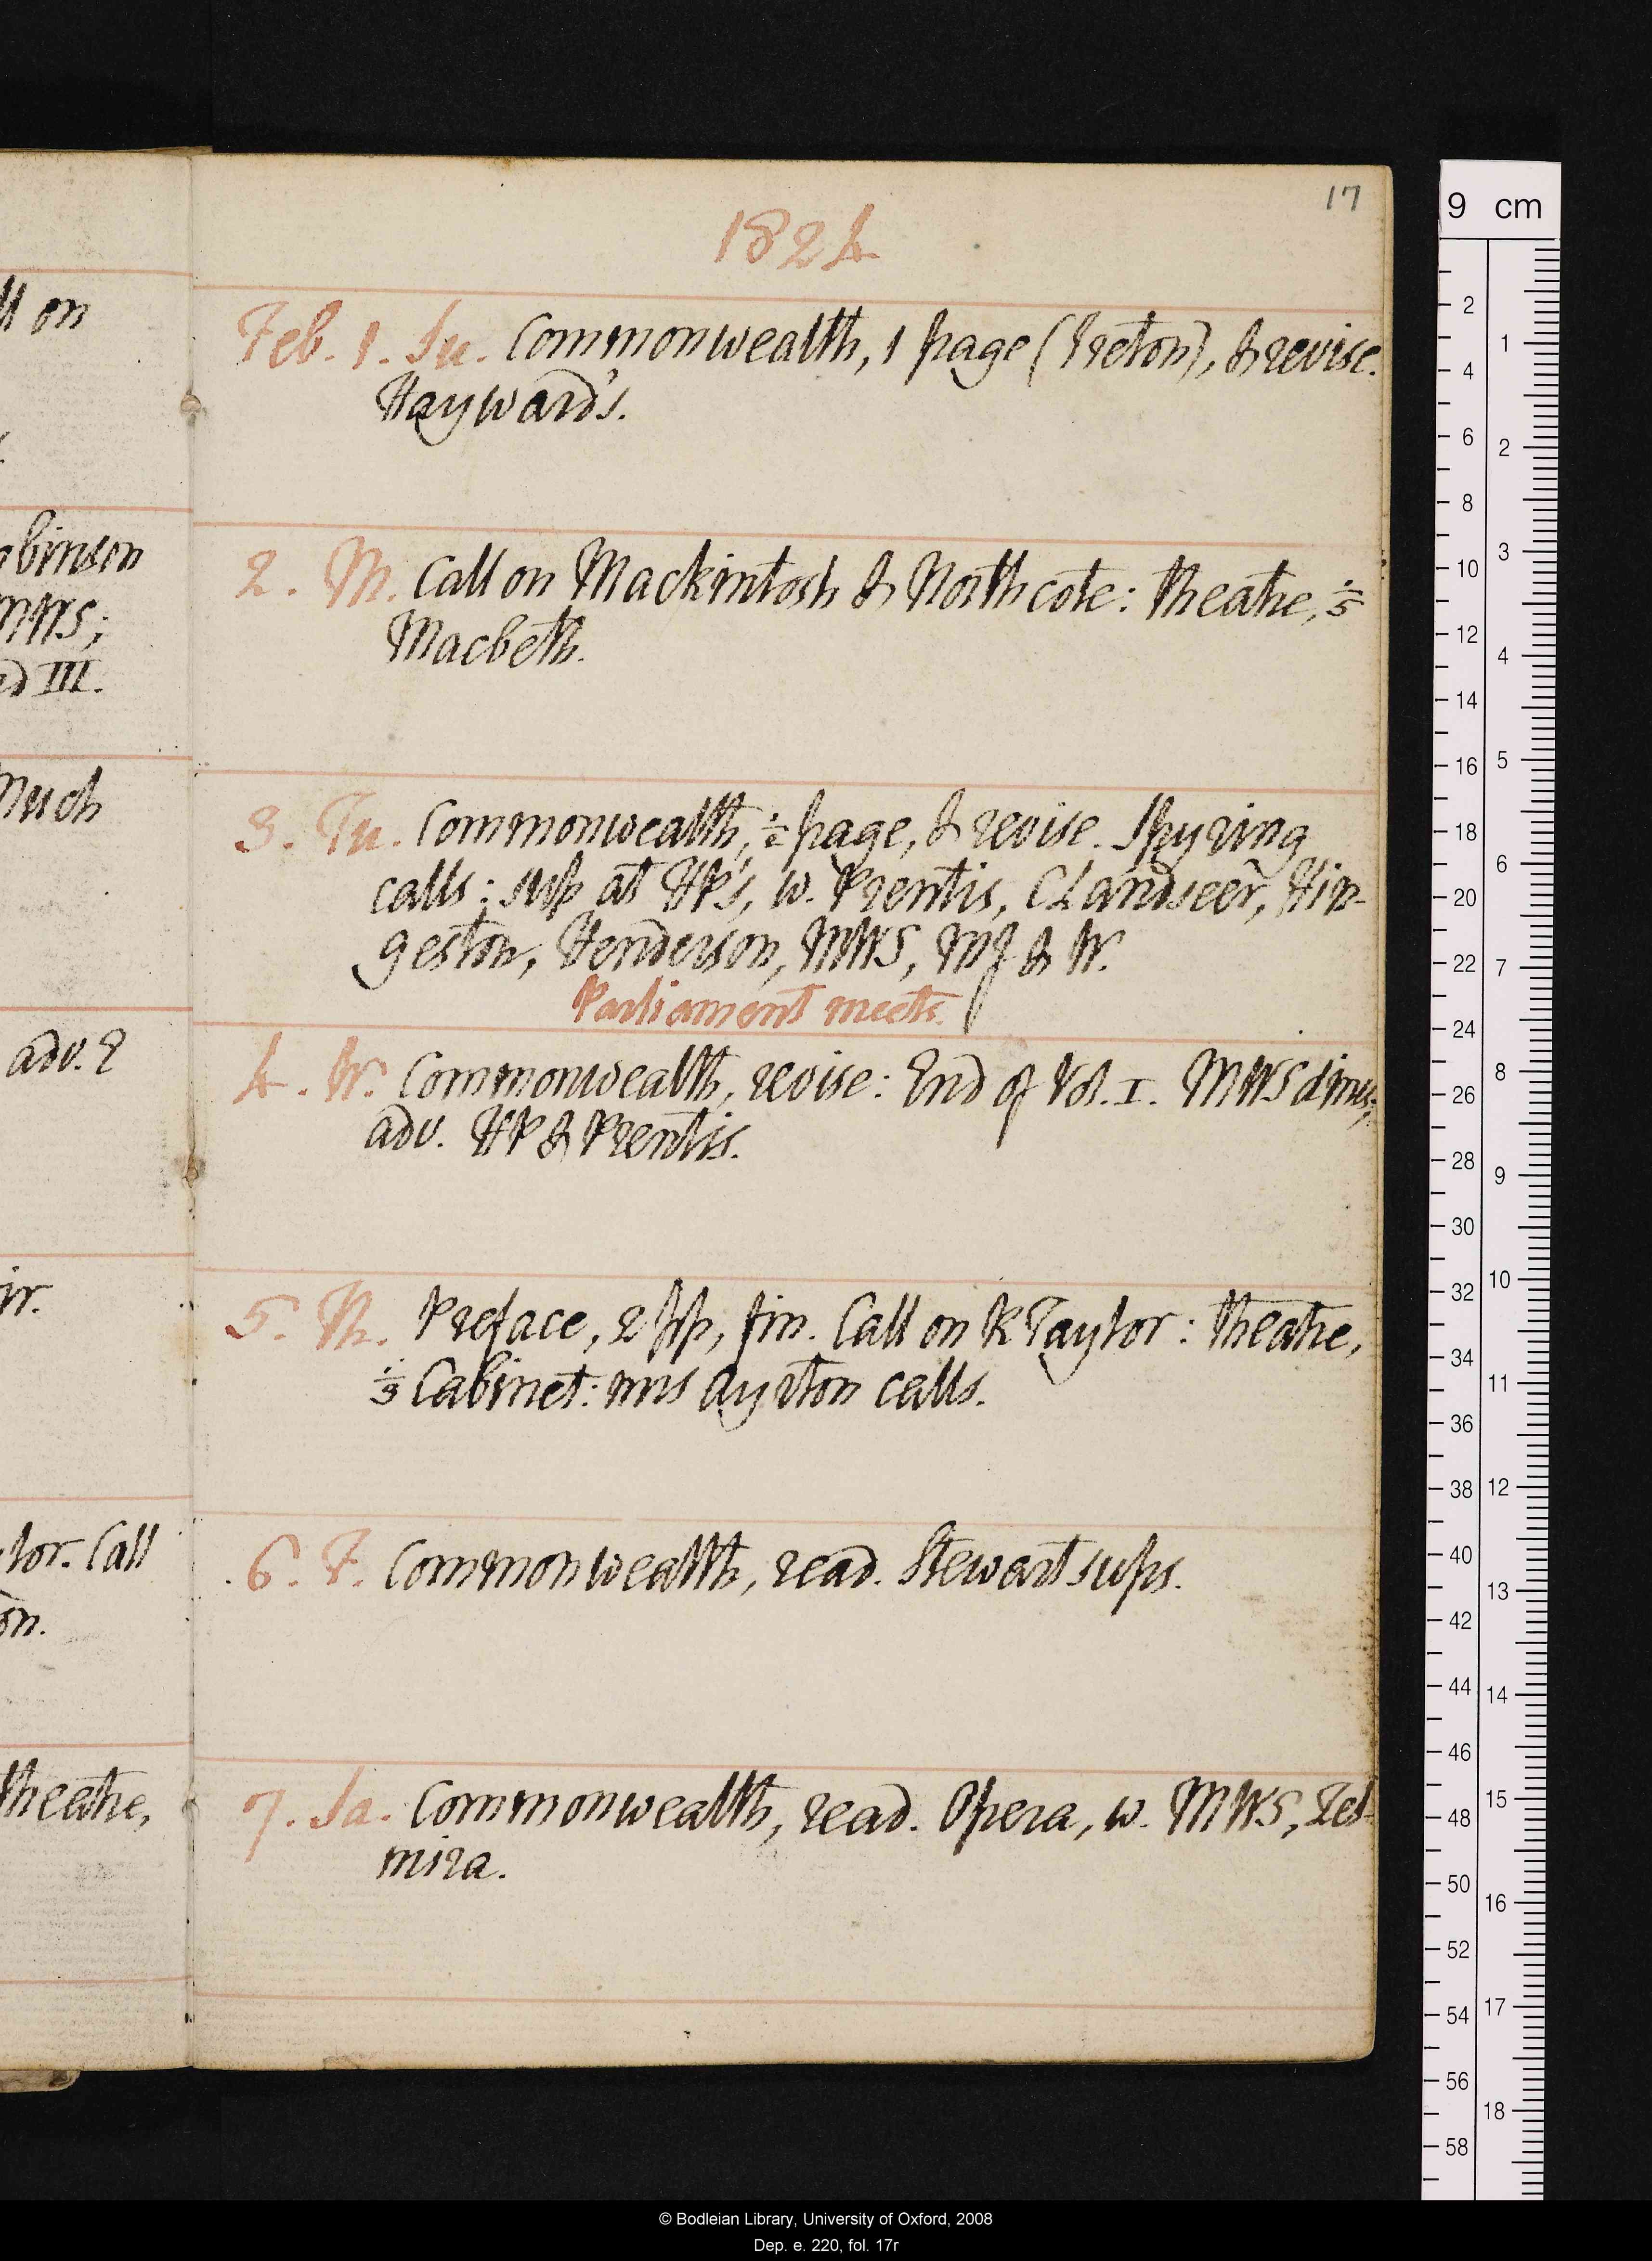 17
1824
Feb. 1. Su. Commonwealth, 1 page (Ireton), & revise.
Hayward's.
2. M. Call on Mackintosh & Northcote: theatre, 1/5
Macbeth.
3. Tu. Commonwealth, 1/2 page, & revise. Spyring
calls: sup at HP's, w. Prentis, CLandseer, Hin-
geston, Henderson, MWS, MJ & W.
Parliament meets.
4. W. Commonwealth, revise: End of Vol. I. MWS dines;
adv. HP & Prentis.
5. Th. Preface, 2 pp, fin. Call on R Taylor: theatre,
1/3 Cabinet: mrs Ayrton calls.
6. F. Commonwealth, read. Stewart sups.
7. Sa. Commonwealth, read. Opera, w. MWS, Zel-
mira.
ll on
binson
MWS;
d III.
Much
adv. 2
lor. Call
on.
theatre,
9 cm
2
4
6
8
10
12
14
16
18
20
22
24
26
28
30
32
34
36
38
40
42
44
46
48
50
52
54
56
58
1
2
3
4
5
6
7
8
9
10
11
12
13
14
15
16
17
18
© Bodleian Library, University of Oxford, 2008
Dep. e. 220, fol. 17r